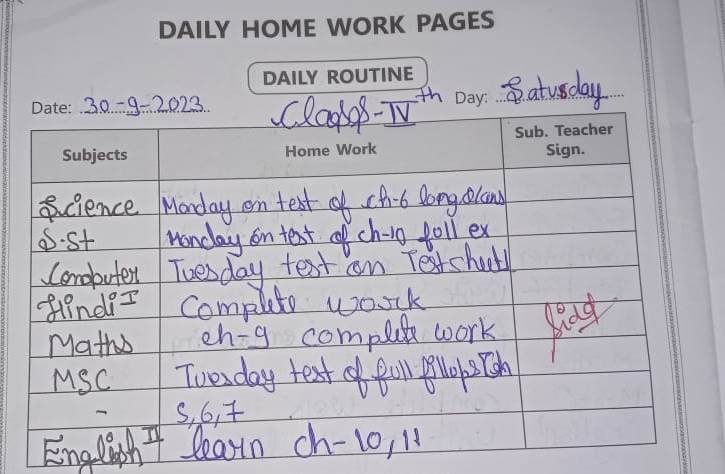 DAILY HOME WORK PAGES
DAILY ROUTINE
Date: 30-9-2023 Class-IVth Day: Saturday
Subjects Home Work Sub. Teacher Sign.
Science Monday on test of ch-6 long
S.St Monday on test of ch-10 full ex
Computer Tuesday test on
Hindi I Complete work
Maths ch-9 complete work
MSC Tuesday test of full
- 5,6,7
English II learn ch-10,11